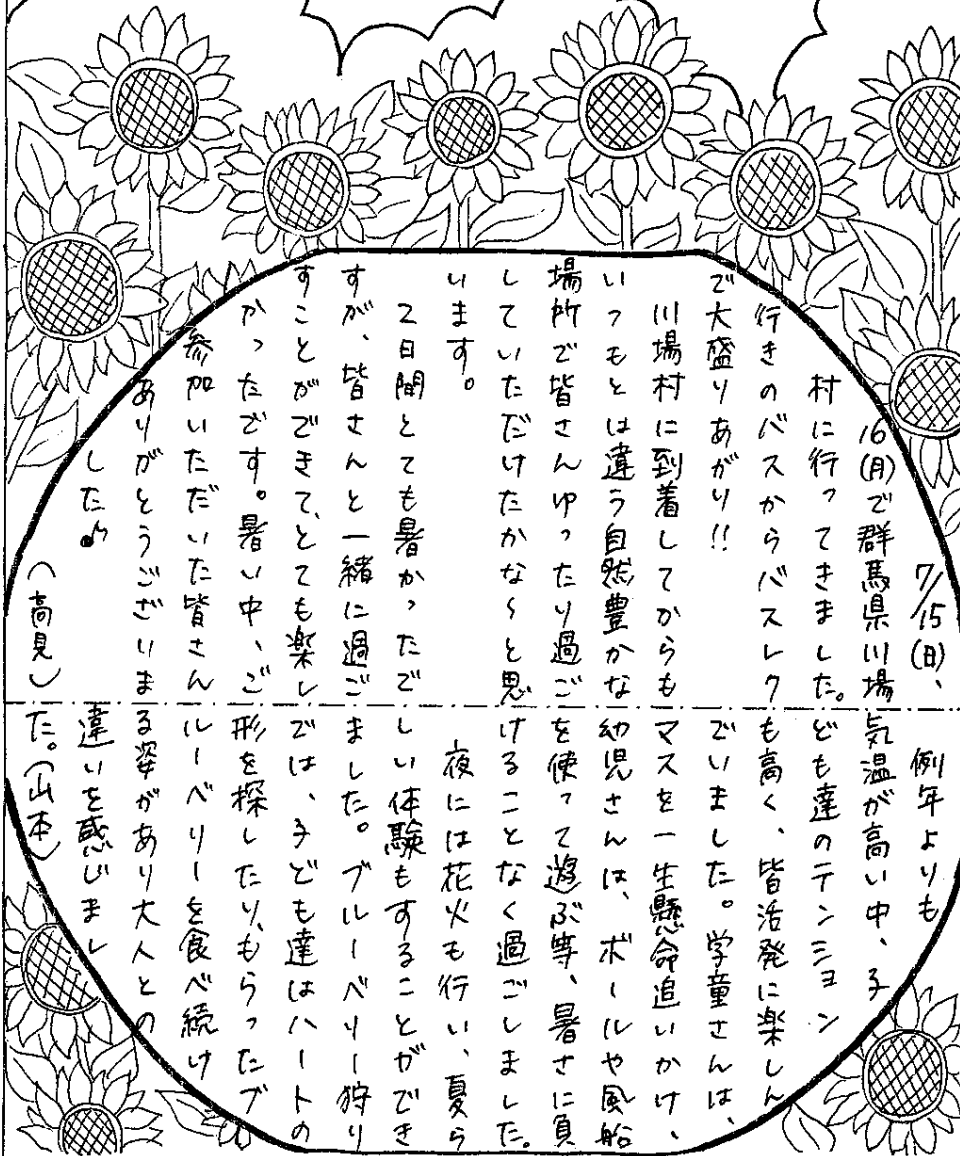 7/15(日)、
16(月)で群馬県川場
村に行ってきました。
行きのバスからバスレク
で大盛りあがり!!
川場村に到着してからも
いつもとは違う自然豊かな
場所で皆さんゆったり過ご
していただけたかな～と思
います。
2日間とても暑かったで
すが、皆さんと一緒に過ご
すことができて、とても楽し
かったです。暑い中、ご
参加いただいた皆さん
ありがとうございま
した♪
(高見)
例年よりも
気温が高い中、子
ども達のテンション
も高く、皆活発に楽しん
でいました。学童さんは、
マスを一生懸命追いかけ、
幼児さんは、ボールや風船
を使って遊ぶ等、暑さに負
けることなく過ごしました。
夜には花火も行い、夏ら
しい体験もすることができ
ました。ブルーベリー狩り
では、子ども達はハートの
形を探したり、もらったブ
ルーベリーを食べ続け
る姿があり大人との
違いを感じまし
た。(山本)